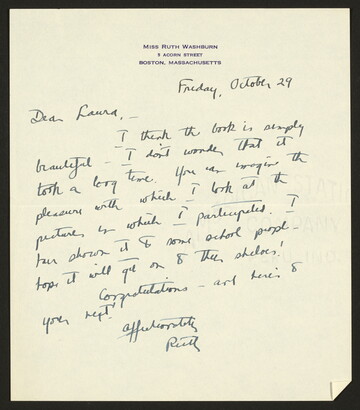 MISS RUTH WASHBURN
5 ACORN STREET
BOSTON, MASSACHUSETTS
Friday, October 29
Dear Laura, -
I think the book is simply
beautiful - I don't wonder that it
took a long time. You can imagine the
pleasure with which I look at the
pictures in which I participated. I
have shown it to some school people -
hope it will get on to their shelves!
Congratulations - and here's to
your next!
Affectionately
Ruth